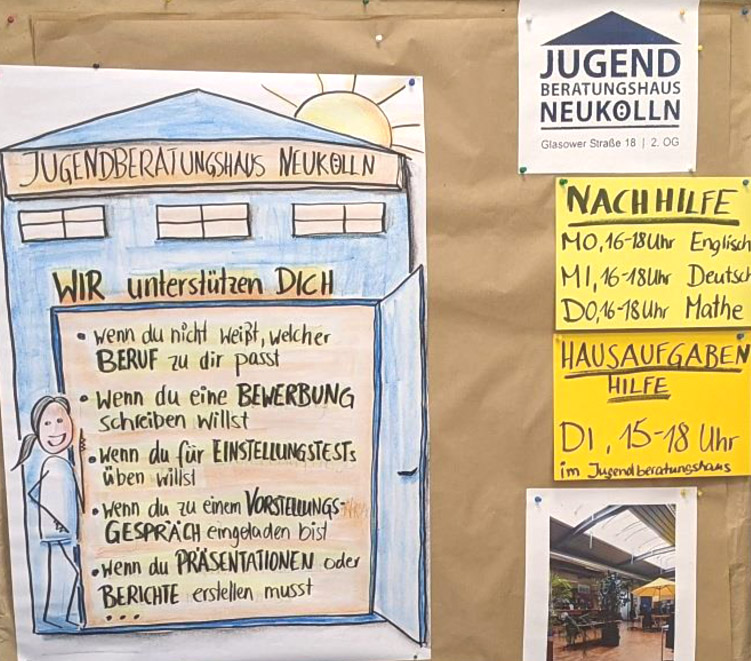 JUGENDBERATUNGSHAUS NEUKÖLLN
WIR unterstützen DICH
• wenn du nicht weißt, welcher
BERUF zu dir passt
• wenn du eine BEWERBUNG
schreiben willst
• wenn du für EINSTELLUNGSTESTs
üben willst
• wenn du zu einem VORSTELLUNGS-
GESPRÄCH eingeladen bist
• wenn du PRÄSENTATIONEN oder
BERICHTE erstellen musst
...
JUGEND
BERATUNGSHAUS
NEUKÖLLN
Glasower Straße 18 | 2. OG
NACHHILFE
MO, 16-18 Uhr Englisch
MI, 16-18 Uhr Deutsc
DO, 16-18 Uhr Mathe
HAUSAUFGABEN
HILFE
DI, 15-18 Uhr
im Jugendberatungshaus